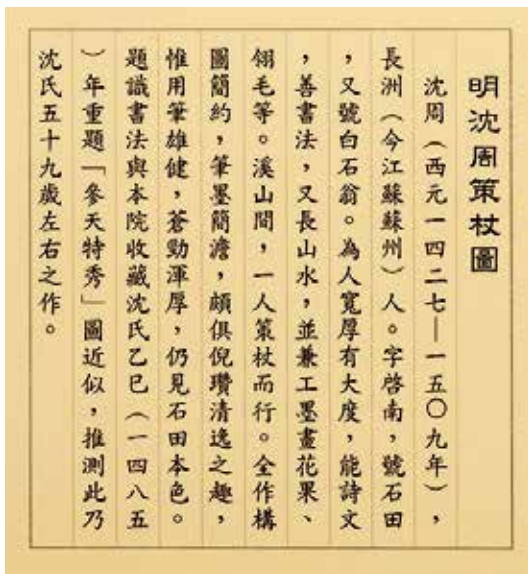 明沈周策杖圖
沈周（西元一四二七—一五〇九年），
長洲（今江蘇蘇州）人。字啓南，號石田
，又號白石翁。為人寬厚有大度，能詩文
，善書法，又長山水，並兼工墨畫花果、
翎毛等。溪山間，一人策杖而行。全作構
圖簡約，筆墨簡澹，頗俱倪瓚清逸之趣，
惟用筆雄健，蒼勁渾厚，仍見石田本色。
題識書法與本院收藏沈氏乙巳（一四八五
）年重題「參天特秀」圖近似，推測此乃
沈氏五十九歲左右之作。